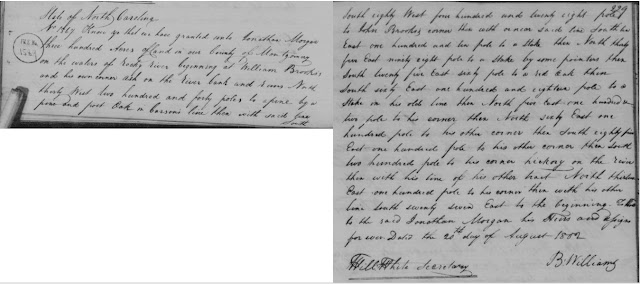 State of North Carolina
Know ye that we have granted unto Jonathan Morgan
three hundred Acres of land in our County of Montgomery
on the waters of rocky river beginning at William Brookes
and his own corner ash on the river bank and runs North
thirty West two hundred and forty poles to a pine by a
pine and post Oak in Carsons line then with said line
South
229
South eighty West four hundred and twenty eight poles
to John Brookes corner then with said line South
East one hundred and ten pole to a Stake then North thirty
five East ninety eight pole to a Stake by some pointers then
South twenty five East sixty pole to a red oak then
South sixty East one hundred and eighteen pole to a
Stake on his old line then North five East one hundred &
two pole to his corner then North sixty East one
hundred pole to his other corner then South eighty five
East one hundred pole to his other corner then South
two hundred pole to his corner hickory on the river
then with his line of his other tract North thirteen
East one hundred pole to his corner then with his other
line South seventy seven East to the beginning. To hold
to the said Jonathan Morgan his Heirs and assigns
for ever Dated the 20th day of August 1802
Will White Secretary B. Williams